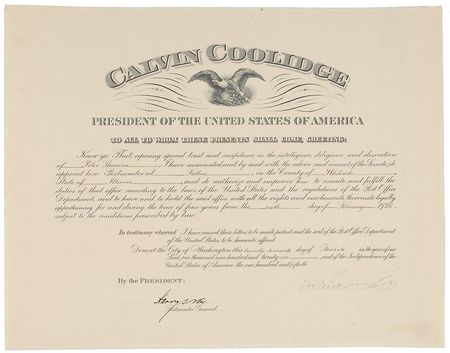 CALVIN COOLIDGE
PRESIDENT OF THE UNITED STATES OF AMERICA
TO ALL TO WHOM THESE PRESENTS SHALL COME, GREETING:
Know ye, That, reposing special trust and confidence in the intelligence, diligence and discretion
of Peter I have nominated, and, by and with the advice and consent of the Senate, do
appoint him Postmaster at in the County of
State of Illinois and do authorize and empower him to execute and fulfil the
duties of that office according to the laws of the United States and the regulations of the Post Office
Department, and to have and to hold the said office with all the rights and emoluments thereunto legally
appertaining for and during the term of four years from the day of February 1926
subject to the conditions prescribed by law.
In testimony whereof I have caused these letters to be made patent and the seal of the Post Office Department
of the United States to be hereunto affixed.
Done at the City of Washington this twenty seventh day of March in the year of our
Lord, one thousand nine hundred and twenty six and of the Independence of the
United States of America, the one hundred and fiftieth.
By the PRESIDENT:
Harry S. New
Postmaster General.